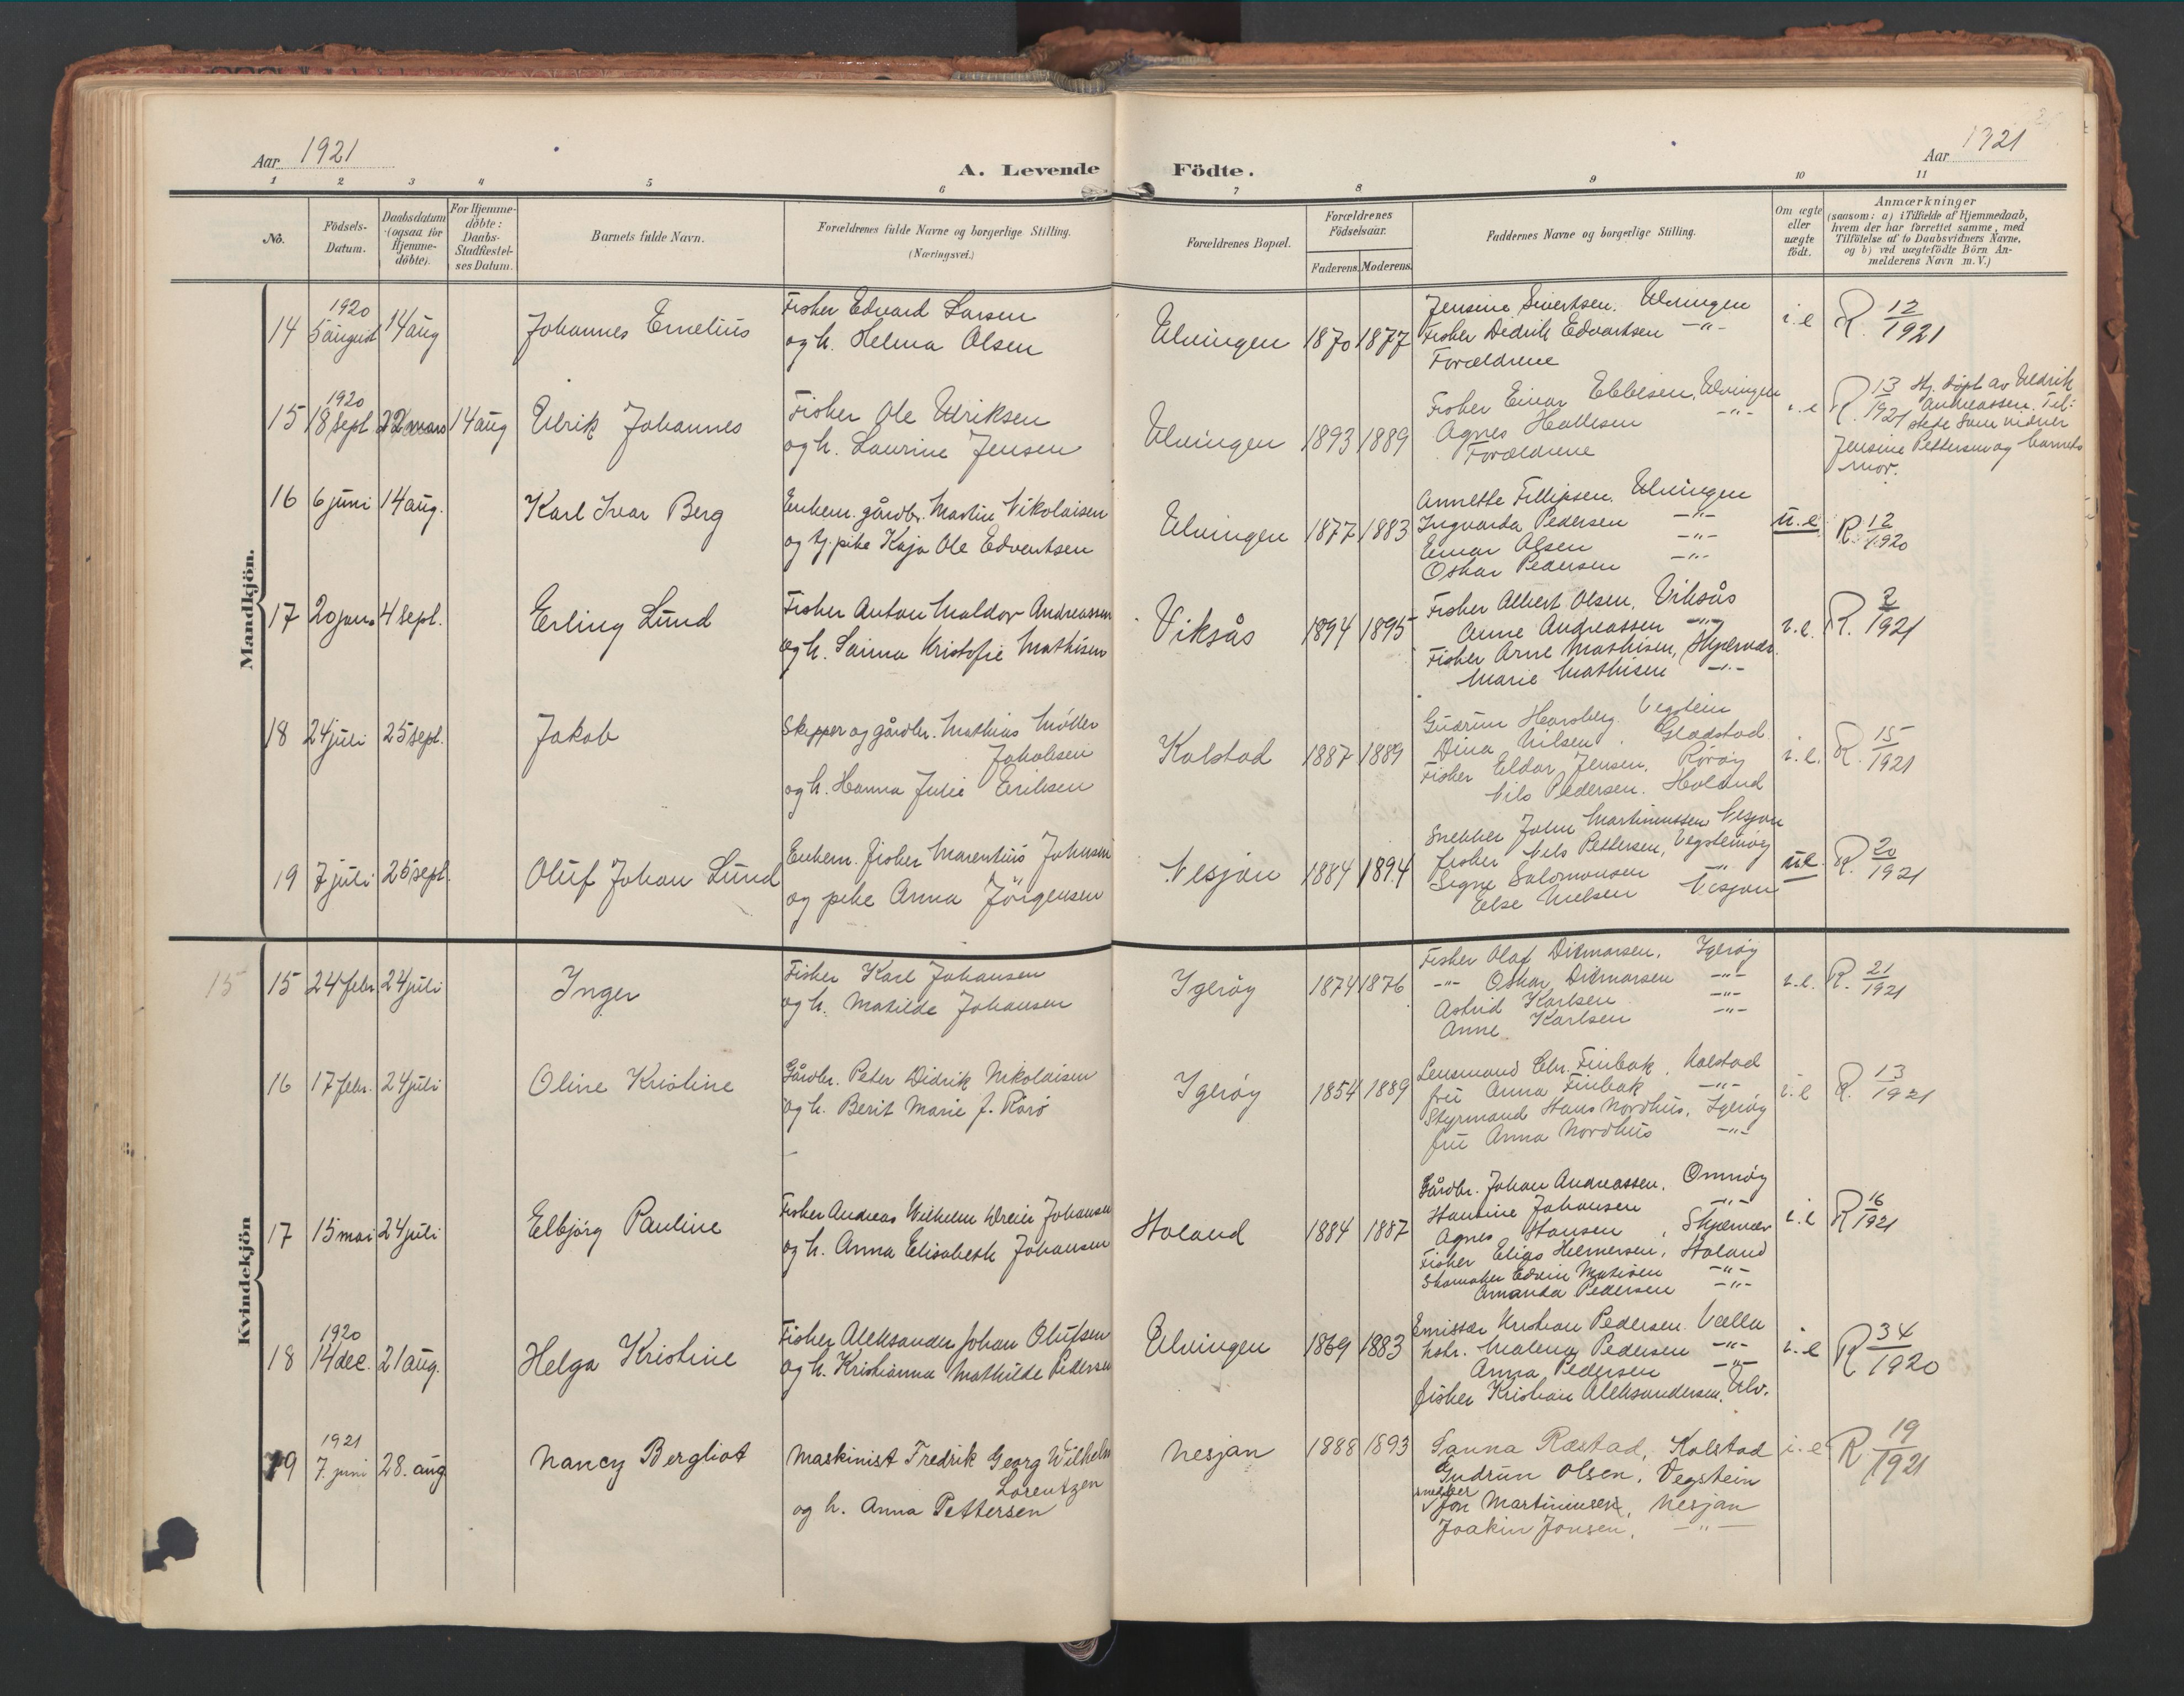 Aar 1921
A. Levende Födte.
Aar 1921
1 2 3 4 5 6 7 8 9 10 11
No.
Födsels-Datum.
Daabsdatum (ogsaa for Hjemme-döbte).
For Hjemme-döbte: Daabs-Stadfæstel-ses Datum.
Barnets fulde Navn.
Forældrenes fulde Navne og borgerlige Stilling.
(Næringsvei.)
Forældrenes Bopæl.
Forældrenes Födselsaar.
Faderens. Moderens.
Faddernes Navne og borgerlige Stilling.
Om ægte eller uægte födt.
Anmærkninger
(saasom: a) i Tilfælde af Hjemmedaab, hvem der har forrettet samme, med Tilföielse af to Daabsvidners Navne, og b) ved uægtefödte Börn An-melderens Navn m. V.)
Mandkjön.
14 1920 5 august 14 aug Johannes Emelius
Fisker Edvard Larsen
og h. Helma Olsen
Ulvingen 1870 1877
Jensine Sivertsen. Ulvingen
Fisker Dedrik Edvartsen -"-
Forældrene
i.e R. 12/1921
15 1920 18 sept 22 mars 14 aug Ulrik Johannes
Fisker Ole Ulriksen
og h. Laurine Jensen
Ulvingen 1893 1889
Fisker Einar Ebbesen, Ulvingen
Agnes Hallesen -"-
Forældrene
i.e R. 13/1921 Hj. døpt av Uldrik
Andreassen. Til-
stede som vidner
Jensine Pettersen og barnets
mor.
16 6 juni 14 aug. Karl Ivar Berg
Enkem. gårdbr. Martin Nikolaisen
og tj. pike Kaja Ole Edvertsen
Ulvingen 1877 1883
Annette Fillipsen. Ulvingen
Ingvarda Pedersen -"-
Einar Olsen -"-
Oskar Pedersen -"-
u.e. R. 12/1920
17 20 janu 4 sept. Erling Lund
Fisker Anton Haldor Andreassen
og h. Sanna Kristofie Mathisen
Viksås 1894 1895
Fisker Albert Olsen, Viksås
Anne Andreassen -"-
Fisker Arne Mathisen, Skjærvær.
Marie Mathisen -"-
i.e. R. 2/1921
18 24 juli 25 sept. Jakob
Skipper og gårdbr. Mathias Møller
Jakobsen
og h. Hanna Julie Eriksen
Kalstad 1887 1889
Gudrun Hansberg. Vegstein
Dina Nilsen. Gladstad
Fisker Eldar Jensen. Rørøy
Nils Pedersen. Holand
i.e. R. 15/1921
19 7 juli 25 sept. Oluf Johan Lund
Enkem. fisker Marentius Johnsen
og pike Anna Jörgensen
Nesjan 1884 1894
Snekker John Martinussen Nesjan
Fisker Nils Pettersen, Vegsteinøy
Signe Salomonsen -"-
Else Nielsen Nesjan
u.e. R. 20/1921
Kvindekjön
15 15 24 febr 24 juli Inger
Fisker Karl Johansen
og h. Matilde Johansen
Igerøy 1874 1876
Fisker Olaf Ditmarsen, Igerøy
-"- Oskar Ditmarsen -"-
Astrid Karlsen -"-
Anne Karlsen -"-
i.e. R. 21/1921
16 17 febr. 24 juli Oline Kristine
Gårdbr. Peter Didrik Nikolaisen
og h. Berit Marie f. Rørø
Igerøy 1854 1889
Lensmand Chr. Finbak, Kalstad
fru Anna Finbak -"-
Styrmand Hans Nordhus, Igerøy
fru Anna Nordhus -"-
i.e R. 13/1921
17 15 mai 24 juli Elbjörg Pauline
Fisker Andreas Wilhelm Dreier Johansen
og h. Anna Elisabeth Johansen
Holand 1884 1887
Gårdbr. Johan Andreassen, Omnøy
Hansine Johansen -"-
Agnes Hansen, Skjærvær
Fisker Elias Helmersen, Holand
Skomaker Edvin Matisen -"-
Amanda Pedersen -"-
i.e R 16/1921
18 1920 14 dec. 21 aug. Helga Kristine
Fisker Aleksander Johan Olufsen
og h. Kristianna Mathilde Pedersen
Ulvingen 1869 1883
Emissær Kristian Pedersen Valla
hstr. Malena Pedersen -"-
Anna Pedersen -"-
fisker Kristian Aleksandersen, Ulv.
i.e R 34/1920
19 1921 7. juni 28. aug Nancy Bergliot
Maskinist Fredrik Georg Wilhelm
Lorentzen
og h. Anna Pettersen
Nesjan 1888 1893
Sanna Rastad, Kalstad
Gudrun Olsen, Vegstein
snekker
Jon Martinusen, Nesjan
Joakin Jonsen, -"-
i.e R 19/1921